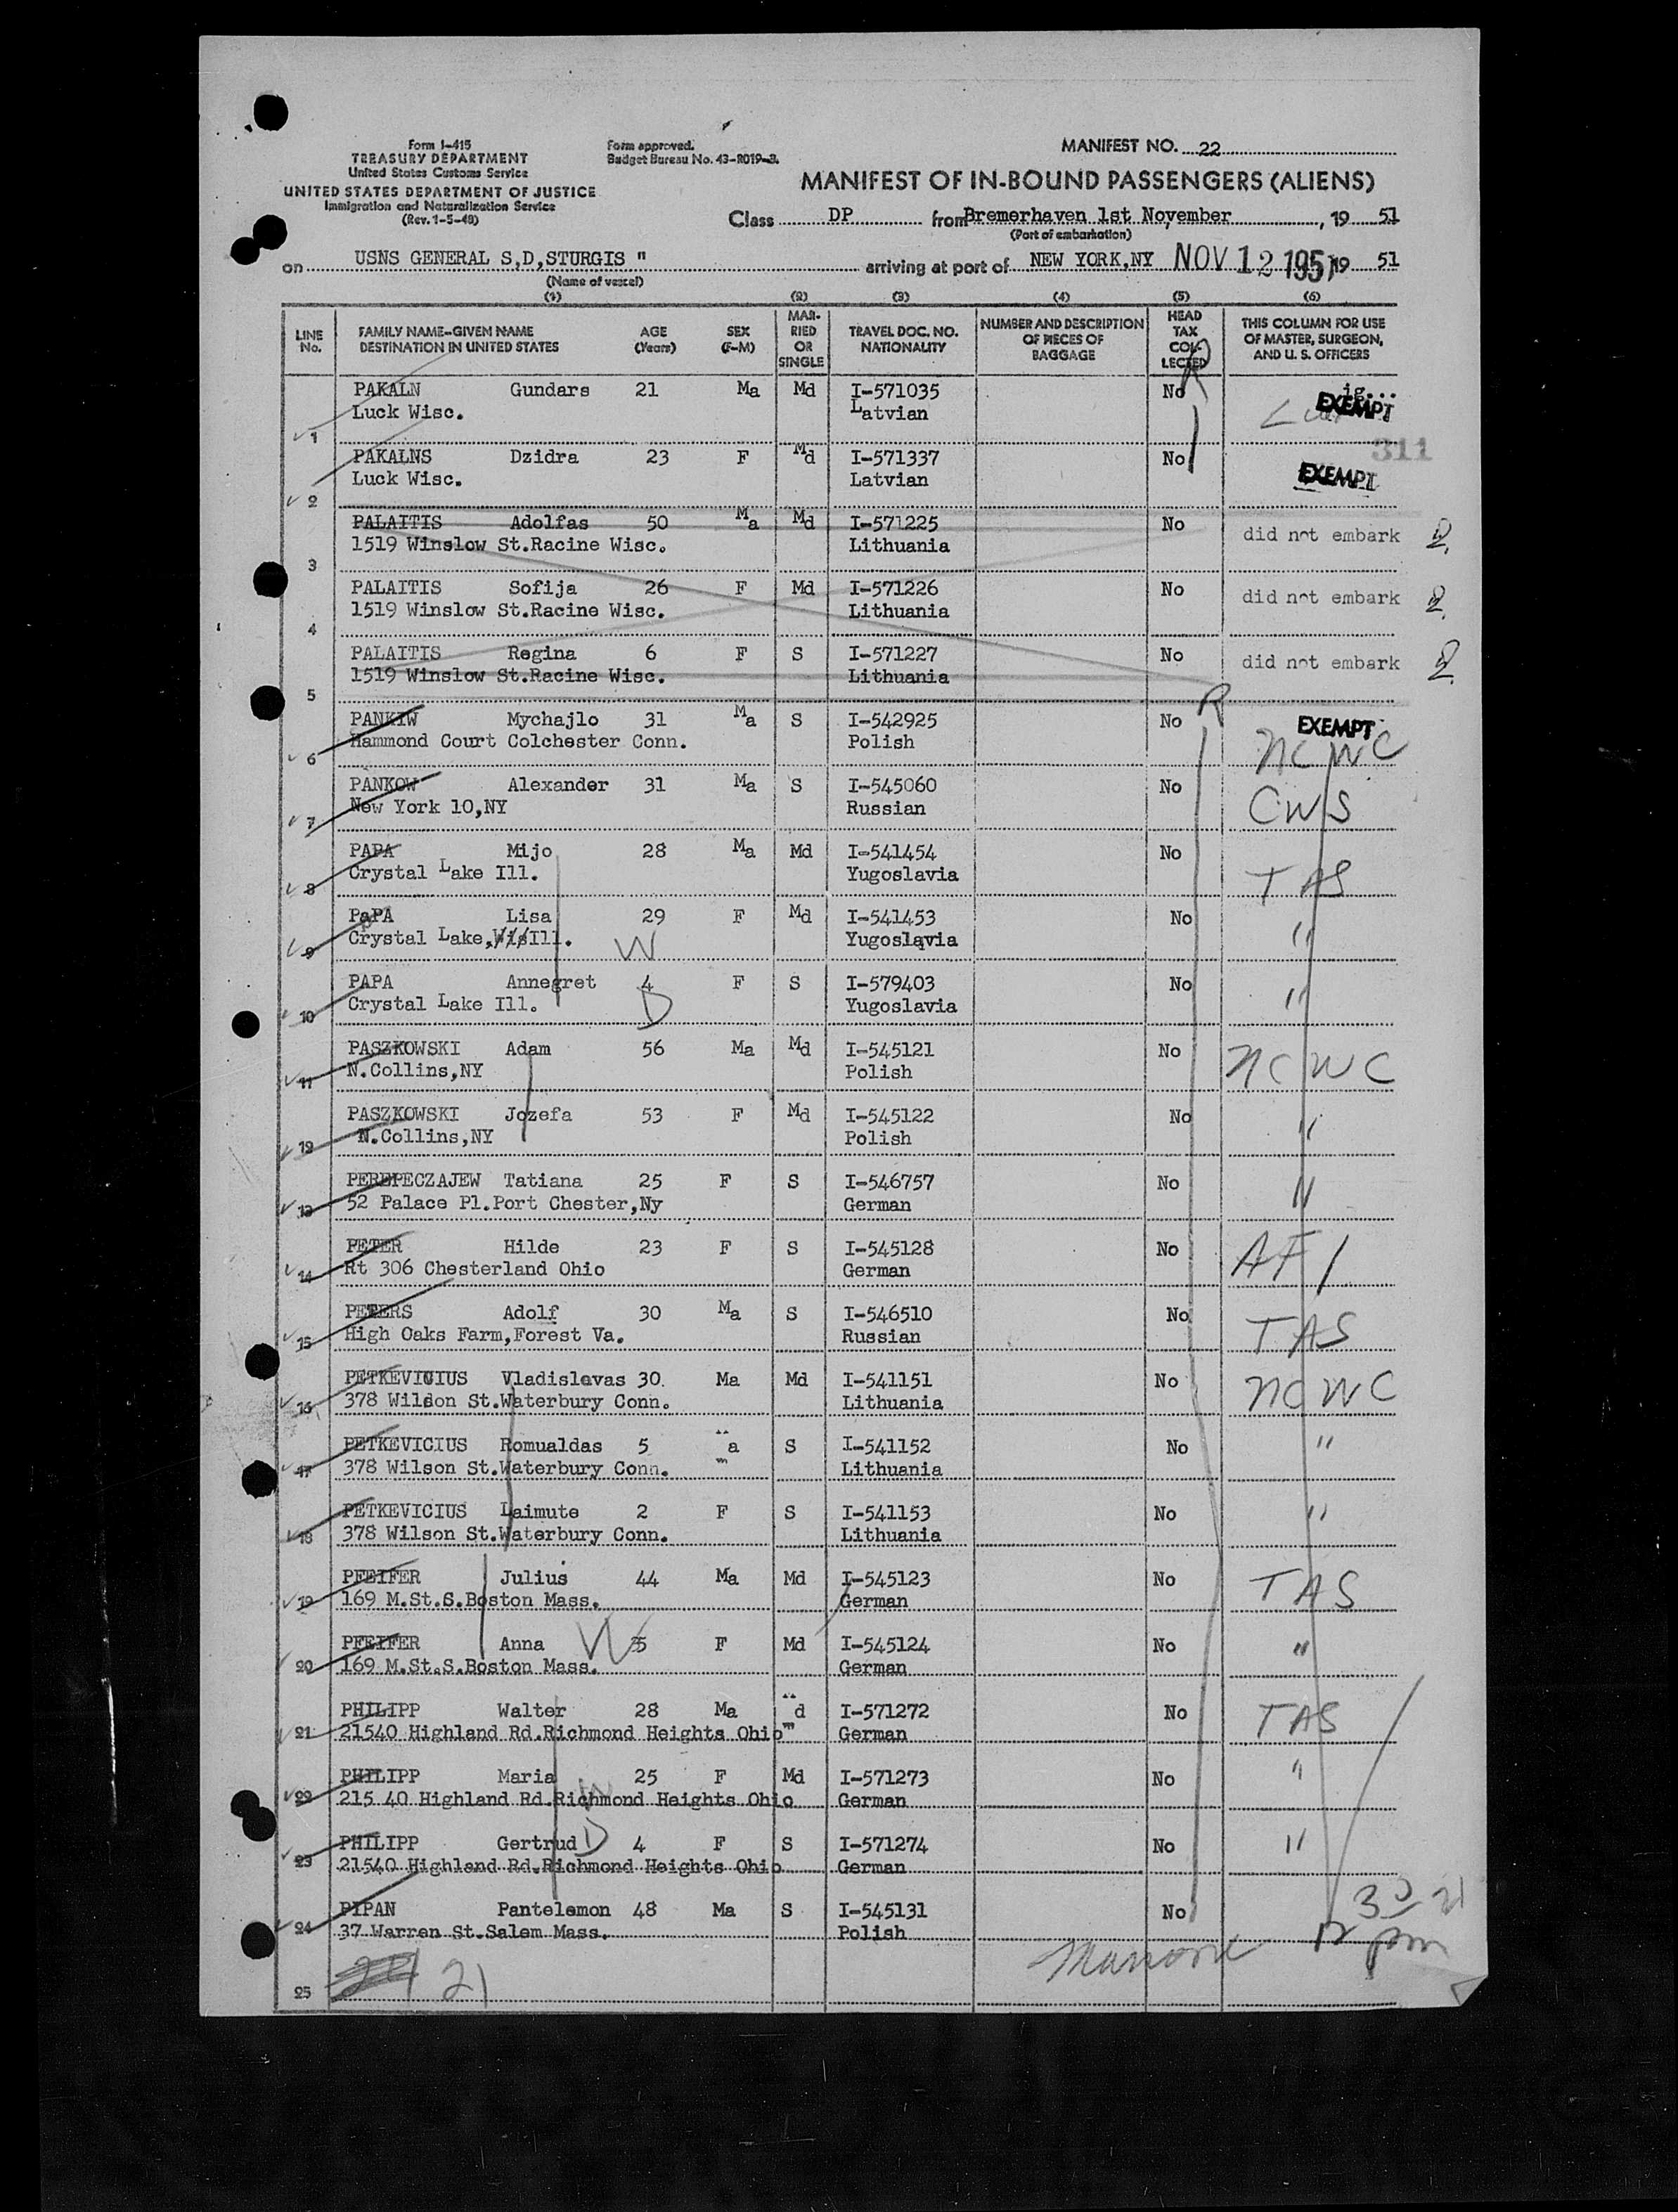 Form I-415
TREASURY DEPARTMENT
United States Customs Service
UNITED STATES DEPARTMENT OF JUSTICE
Immigration and Naturalization Service
(Rev. 1-5-48)
Form approved.
Budget Bureau No. 43-R019-3.
MANIFEST NO. 22
MANIFEST OF IN-BOUND PASSENGERS (ALIENS)
Class DP from Bremerhaven 1st November, 19 51
(Port of embarkation)
on USNS GENERAL S,D,STURGIS " arriving at port of NEW YORK,NY NOV 12 1951 19 51
(Name of vessel)
(1) (2) (3) (4) (5) (6)
LINE No. FAMILY NAME-GIVEN NAME DESTINATION IN UNITED STATES AGE (Years) SEX (F-M) MARRIED OR SINGLE TRAVEL DOC. NO. NATIONALITY NUMBER AND DESCRIPTION OF PIECES OF BAGGAGE HEAD TAX COLLECTED THIS COLUMN FOR USE OF MASTER, SURGEON, AND U. S. OFFICERS
PAKALN Gundars 21 Ma Md I-571035 No EXEMPT
1 Luck Wisc. Latvian
311
PAKALNS Dzidra 23 F Md I-571337 No EXEMPT
2 Luck Wisc. Latvian
PALAITIS Adolfas 50 Ma Md I-571225 No did not embark
3 1519 Winslow St.Racine Wisc. Lithuania
PALAITIS Sofija 26 F Md I-571226 No did not embark
4 1519 Winslow St.Racine Wisc. Lithuania
PALAITIS Regina 6 F S I-571227 No did not embark
5 1519 Winslow St.Racine Wisc. Lithuania
PANKIW Mychajlo 31 Ma S I-542925 No EXEMPT
6 Hammond Court Colchester Conn. Polish NCWC
PANKOW Alexander 31 Ma S I-545060 No
7 New York 10,NY Russian CWS
PAPA Mijo 28 Ma Md I-541454 No
8 Crystal Lake Ill. Yugoslavia TAS
PAPA Lisa 29 F Md I-541453 No
9 Crystal Lake,Wis Ill. W Yugoslavia "
PAPA Annegret 4 F S I-579403 No
10 Crystal Lake Ill. D Yugoslavia "
PASZKOWSKI Adam 56 Ma Md I-545121 No
11 N.Collins,NY Polish NCWC
PASZKOWSKI Jozefa 53 F Md I-545122 No
12 N.Collins,NY Polish "
PEREPECZAJEW Tatiana 25 F S I-546757 No
13 52 Palace Pl.Port Chester,Ny German "
PETER Hilde 23 F S I-545128 No
14 Rt 306 Chesterland Ohio German
PETERS Adolf 30 Ma S I-546510 No
15 High Oaks Farm,Forest Va. Russian TAS
PETKEVICIUS Vladislavas 30 Ma Md I-541151 No
16 378 Wilson St.Waterbury Conn. Lithuania NCWC
PETKEVICIUS Romualdas 5 Ma S I-541152 No "
17 378 Wilson St.Waterbury Conn. Lithuania
PETKEVICIUS Laimute 2 F S I-541153 No "
18 378 Wilson St.Waterbury Conn. Lithuania
PFEIFER Julius 44 Ma Md I-545123 No TAS
19 169 M.St.S.Boston Mass. German
PFEIFER Anna W 35 F Md I-545124 No "
20 169 M.St.S.Boston Mass. German
PHILIPP Walter 28 Ma Md I-571272 No TAS
21 21540 Highland Rd.Richmond Heights Ohio German
PHILIPP Maria 25 F Md I-571273 No "
22 215 40 Highland Rd.Richmond Heights Ohio W German
PHILIPP Gertrud D 4 F S I-571274 No "
23 21540 Highland Rd.Richmond Heights Ohio German
PIPAN Pantelemon 48 Ma S I-545131 No
24 37 Warren St.Salem Mass. Polish
12 pm
25 21